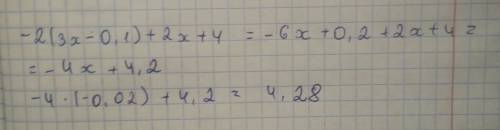 -2(3x-0,1)+2x+4 = -6x+0,2+2x+4=
=-4x+4,2
-4·(-0,02)+4,2 = 4,28